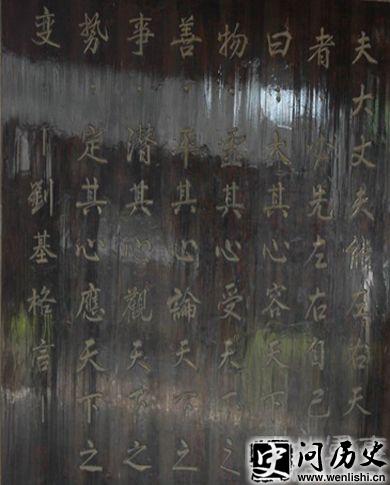 夫大丈夫能左右天
者必先左右自己
曰·大其心容天下
物·虛其心受天下之
善·平其心論天下之
事·潜其心觀天下之
势·定其心應天下之
变—劉基格言—
史 问历史
www.wenlishi.cn